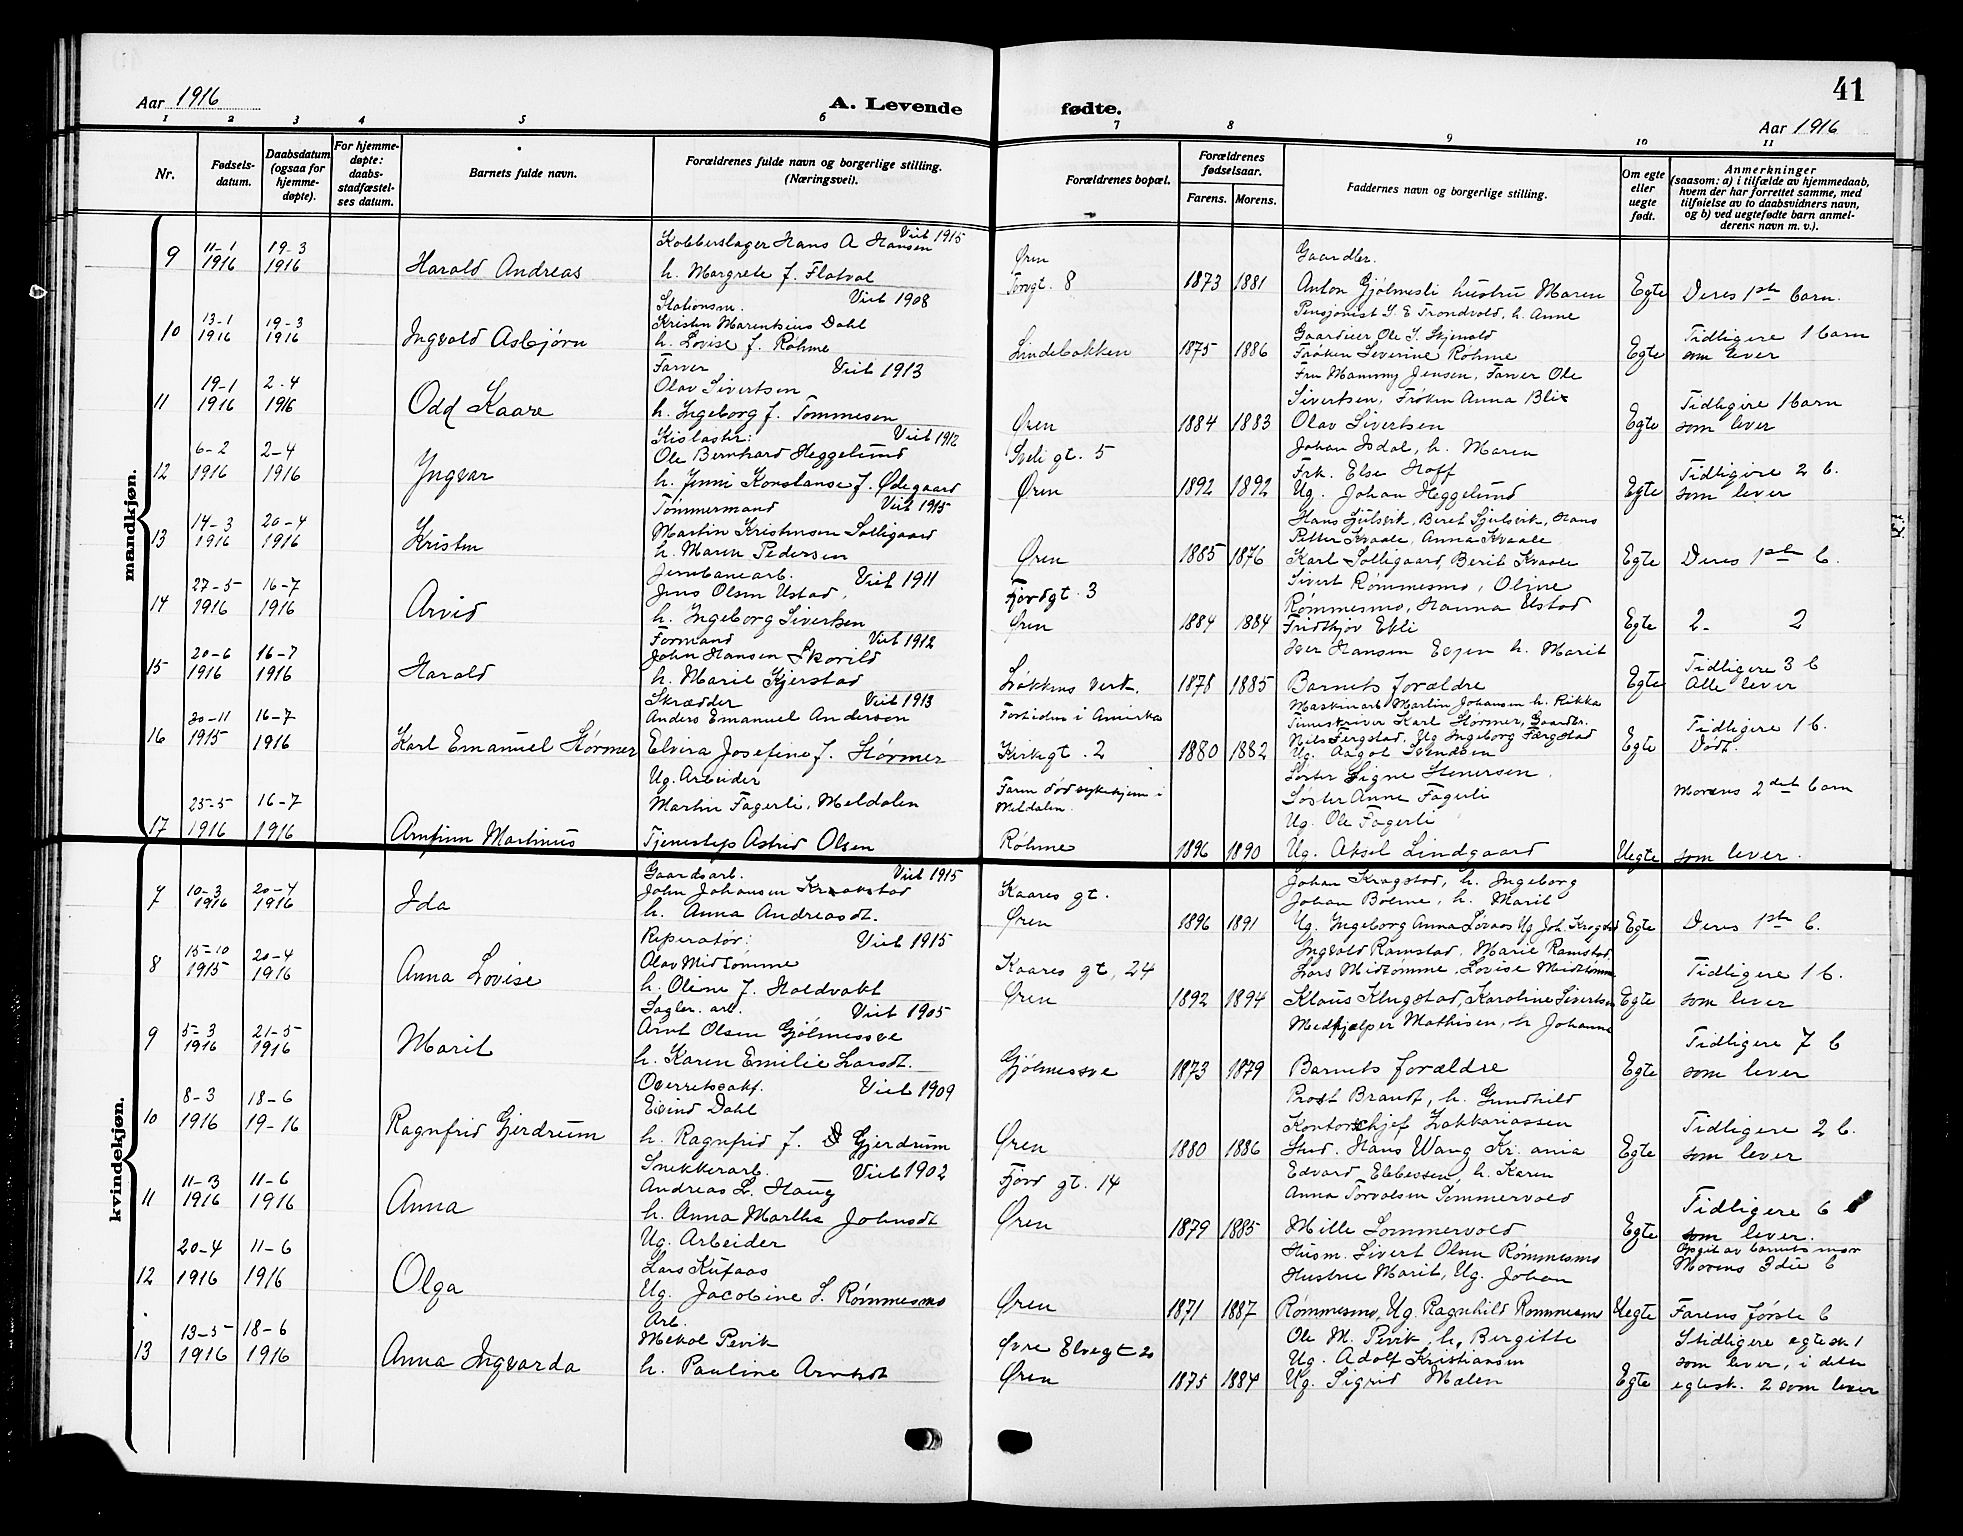 41
Aar 1916
A. Levende
fødte.
Aar 1916
1 2 3 4 5 6 7 8 9 10 11
Nr.
Fødsels-
datum.
Daabsdatum
(ogsaa for
hjemme-
døpte).
For hjemme-
døpte:
daabs-
stadfæstel-
ses datum.
Barnets fulde navn.
Forældrenes fulde navn og borgerlige stilling.
(Næringsvei).
Forældrenes bopæl.
Forældrenes
fødselsaar.
Farens. Morens.
Faddernes navn og borgerlige stilling.
Om egte
eller
uegte
født.
Anmerkninger
(saasom: a) i tilfælde av hjemmedaab,
hvem der har forrettet samme, med
tilføielse av to daabsvidners navn,
og b) ved uegtefødte barn anmel-
derens navn m. v.).
mandkjøn.
9
11-1
1916
19-3
1916
Harald Andreas
Kobberslager Hans A Hansen Viet 1915
h. Margrete f. Flatval
Øren
Torvgt. 8
1873 1881
Gaardbr.
Anton Gjølmesli hustru Maren
Pensjonist S. E Trondvold, h. Anne
Egte
Deres 1ste barn.
10
13-1
1916
19-3
1916
Ingvald Asbjørn
Stationsm. Viet 1908
Kristen Marentsius Dahl
h. Lovise f. Røhme
Lindebakken
1875 1886
Gaardeier Ole S. Skjenald
Frøken Severine Røhme
Fru Mammy Jensen, Farver Ole
Egte
Tidligere 1 barn
som lever
11
19-1
1916
2-4
1916
Odd Kaare
Farver Viet 1913
Olav Sivertsen
h. Ingeborg f. Tommesen
Øren
1884 1883
Sivertsen, Frøken Anna Blix
Olav Sivertsen
Egte
Tidligere 1 barn
som lever
12
6-2
1916
2-4
1916
Yngvar
Viet 1912
Ole Bernhard Heggelund
h. Jenni Konstanse f. Ødegaard
gt. 5
Øren
1892 1892
Johan Isdal, h. Maren
Frk. Else Hoff
Ug. Johan Heggelund
Egte
Tidligere 2 b.
som lever
13
14-3
1916
20-4
1916
Kristen
Tømmermand Viet 1915
Martin Kristensen Solligaard
h. Maren Pedersen
Øren
1885 1876
Hans Gjulsvik, Beret Gjulsvik, Hans
Petter Kvaale, Anna Kvaale
Karl Solligaard, Berit Kvaale
Egte
Deres 1ste b.
14
27-5
1916
16-7
1916
Arvid
Jernbanearb. Viet 1911
Jens Olsen Ustad,
h. Ingeborg Sivertsen
Fjordgt. 3
Øren
1884 1884
Sivert Rømmesmo, Oline
Rømmesmo, Hanna Ustad
Fridthjov Ekli
Egte
2- 2
15
20-6
1916
16-7
1916
Harald
Formand Viet 1912
John Hansen Skorild
h. Marie Kjerstad
Løkkens Verk.
1878 1885
Iver Hansen Evjen h. Marit
Barnets forældre
Egte
Tidligere 3 b
Alle lever
16
20-11
1915
16-7
1916
Karl Emanuel Størmer
Skrædder Viet 1913
Anders Emanuel Andersen
Elvira Josefine f. Størmer
Fortiden i Amerika
Kirkegt. 2
1880 1882
Maskinarb Martin Johansen h. Rikka
Timeskriver Karl Størmer, Gaardbr.
Nils Fergstad, Ug Ingeborg Færgstad
Ug. Aagot Svendsen
Egte
Tidligere 1 b.
Dødt.
17
25-5
1916
16-7
1916
Arnfinn Martinus
Ug. Arbeider
Martin Fagerli, Meldalen
Tjenestep Astrid Olsen
Faren død sykehjem i
Meldalen.
Røhme
1896 1890
Søster Signe Stenersen
Søster Anne Fagerli
Ug. Ole Fagerli
Ug. Aksel Lindgaard
Uegte
Morens 2det barn
som lever.
kvindekjøn.
7
10-3
1916
20-4
1916
Ida
Gaardsarb. Viet 1915
John Johansen Krokstad
h. Anna Andreasdt.
Kaares gt.
Øren
1896 1891
Johan Kragstad, h. Ingeborg
Johan Bøhme, h. Marit
Ug. Ingeborg Anna Løvaas Ug Joh. Krogstad
Egte
Deres 1ste b.
8
15-10
1915
20-4
1916
Anna Lovise
Reperatør: Viet 1915
Olav Midtømme
h. Olene f. Holdvakt
Kaares gt, 24
Øren
1892 1894
Ingvald Ramstad, Marie Ramstad
Lars Midtømme, Lovise Midtømme
Klaus Klugstad, Karoline Sivertsen
Egte
Tidligere 1 b.
som lever
9
5-3
1916
21-5
1916
Marit
Sagbr. arb. Viet 1905
Arnt Olsen Gjølmesøve
h. Karen Emilie Larsdt.
Gjølmesøve
1873 1879
Medhjælper Mathisen, h Johanne
Barnets forældre
Egte
Tidligere 7 b
som lever
10
8-3
1916
18-6
19-16
Ragnfrid Gjerdrum
Overretssakf. Viet 1909
Eivind Dahl
h. Ragnfrid f. Gjerdrum
Øren
1880 1886
Prost Brandt, h. Gundhild
Kontorchjef Zakkariassen
Stud. Hans Wang Kr. ania
Egte
Tidligere 2 b.
som lever
11
11-3
1916
11-6
1916
Anna
Snekkerarb. Viet 1902
Andreas L. Haug
h. Anna Martha Johnsdt
Fjord gt. 14
Øren
1879 1885
Edvard Ebbessen, h. Karen
Anna Torvalsen Sommervold
Mille Sommervold
Egte
Tidligere 6 b
som lever.
12
20-4
1916
11-6
1916
Olga
Ug. Arbeider
Lars Kufaas
Ug. Jacobine S. Rømmesmo
Øren
1871 1887
Husm. Sivert Olsen Rømmesmo
Hustru Marit, Ug. Johan
Rømmesmo, Ug. Ragnhild Rømmesmo
Uegte
Opgit av barnets mor
Morens 3die b
Farens første b
13
13-5
1916
18-6
1916
Anna Ingvarda
Arb.
Mekal Pevik
h. Pauline Arntsdt
Øvre Elvegt 20
Øren
1875 1884
Ole M. Pevik, h. Bergitte
Ug. Adolf Kristiansen
Ug. Sigrid Mælen
Egte
I tidligere egtesk 1
som lever, i dette
egtesk. 2 som lever